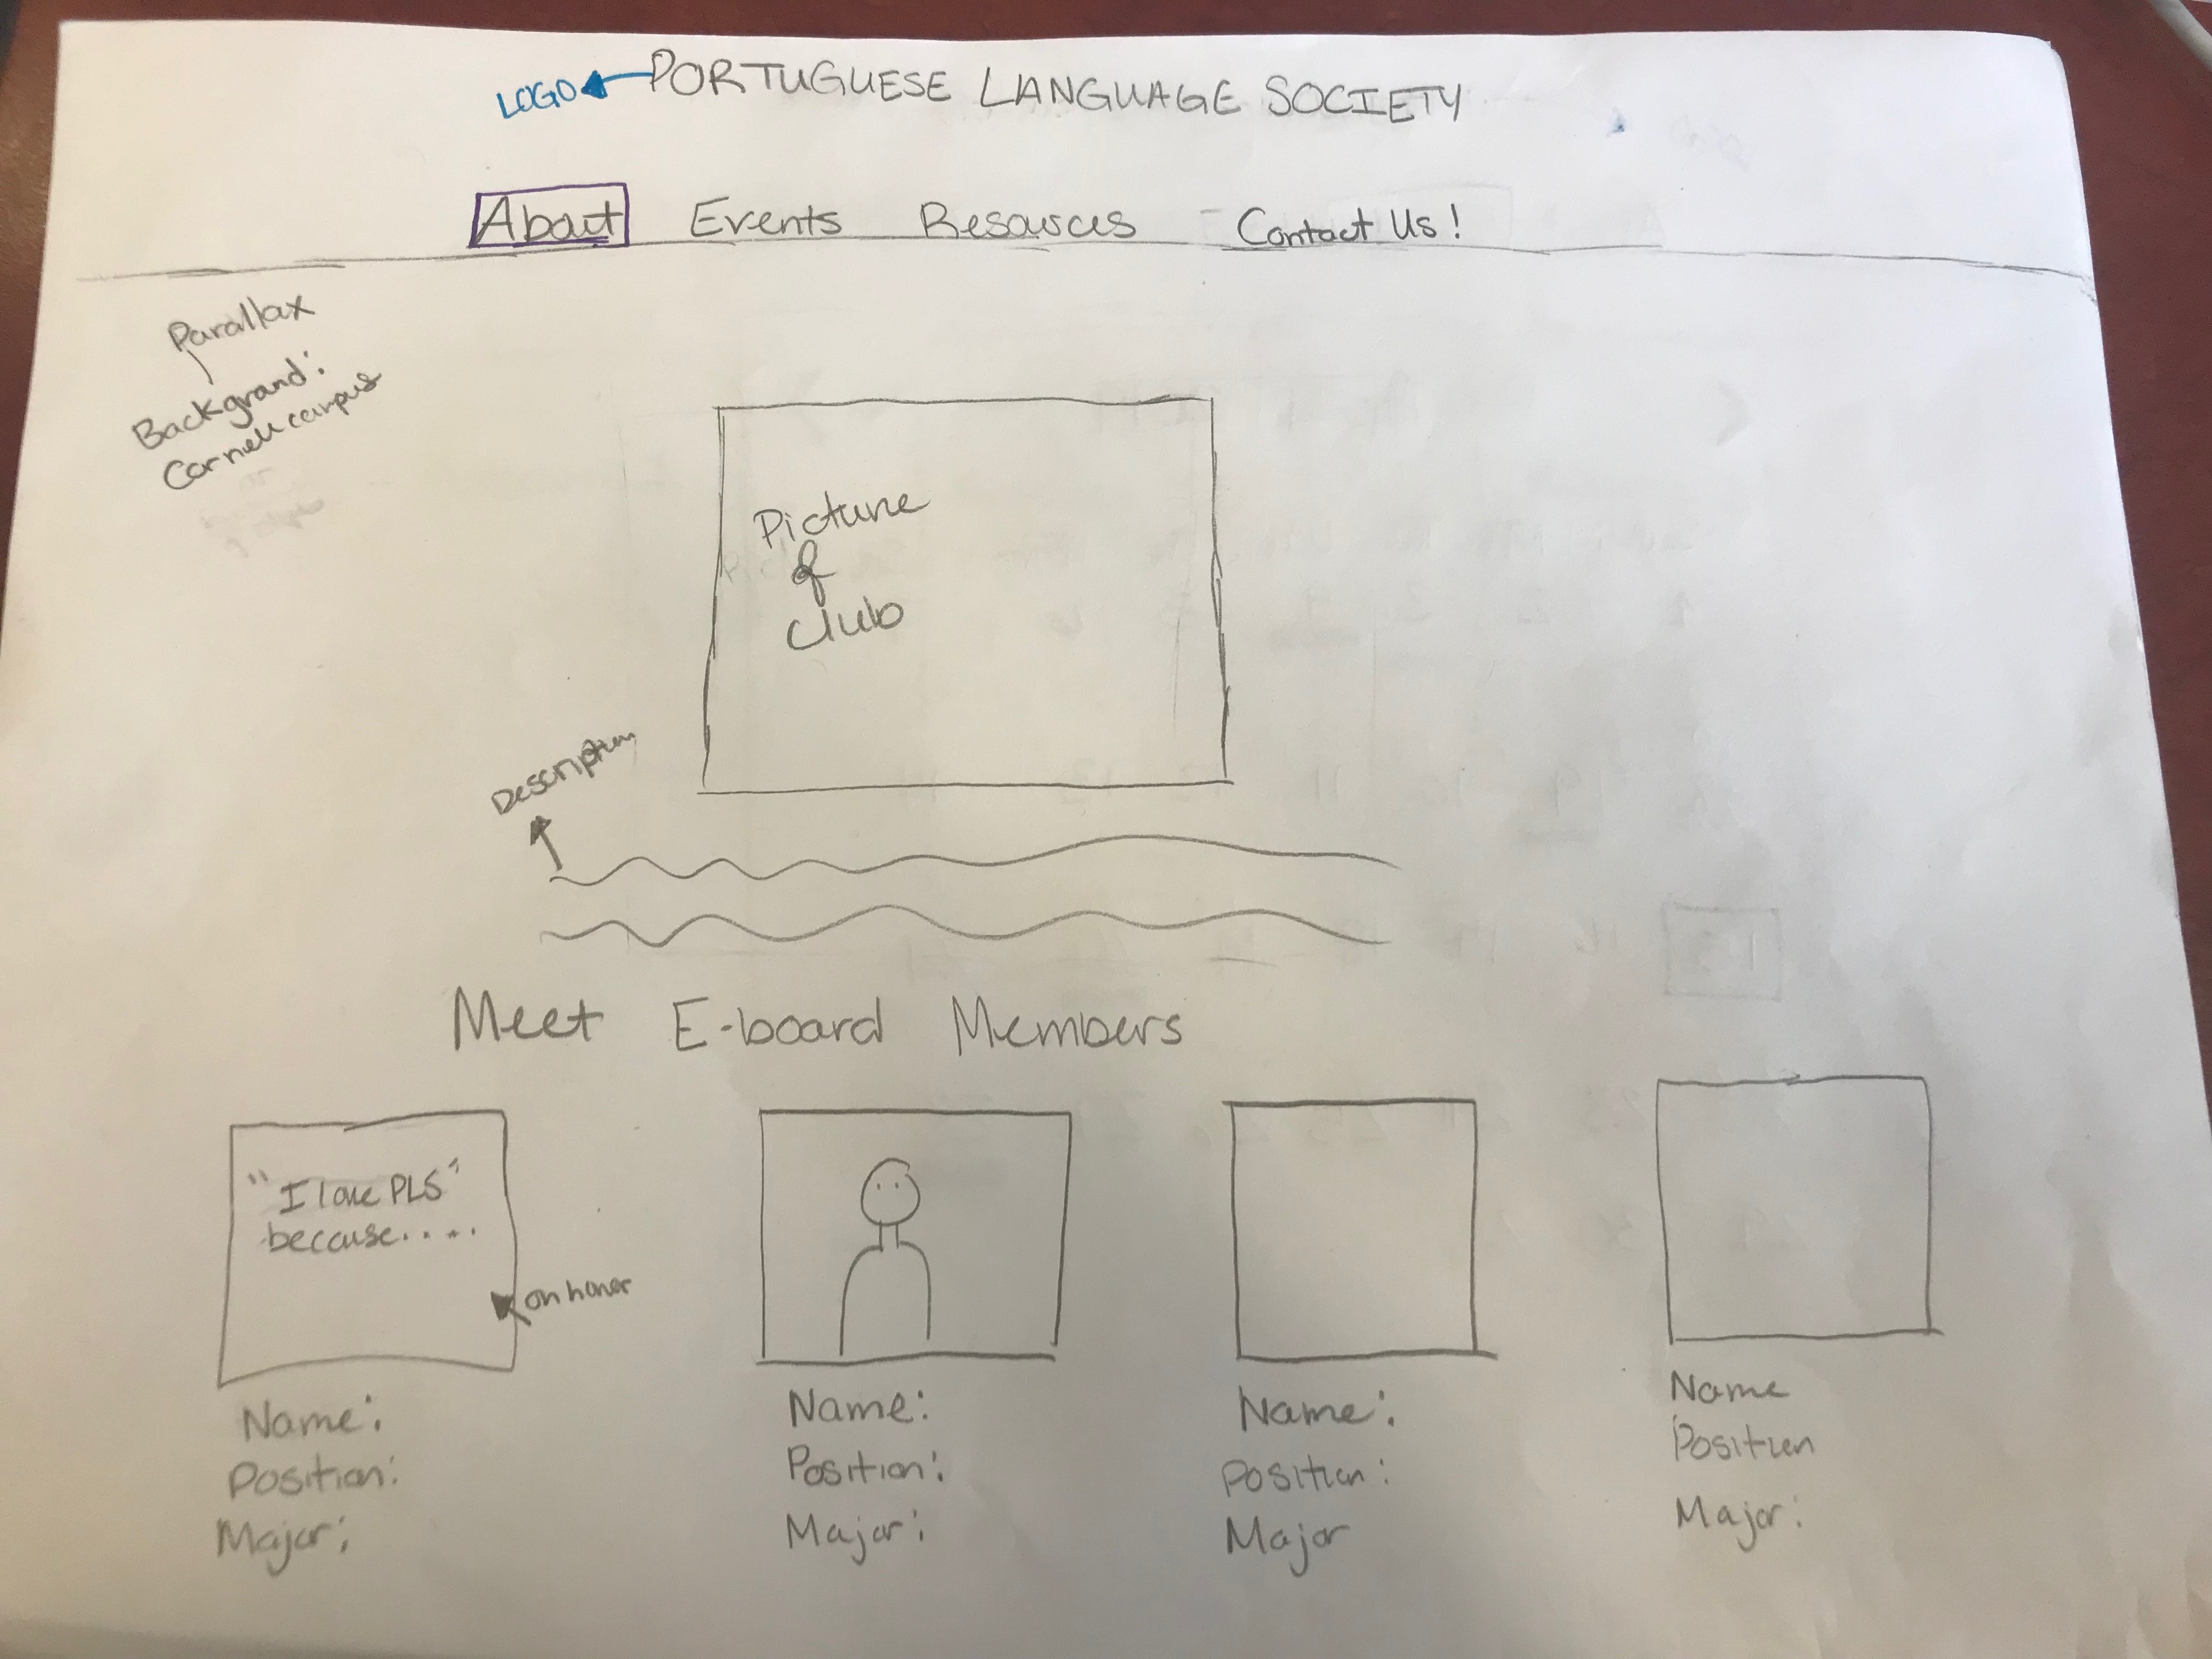 LOGO
PORTUGUESE LANGUAGE SOCIETY
About Events Resources Contact Us!
Parallax
Background:
Cornell campus
Picture
of
Club
Description
Meet E-board Members
"I love PLS"
because....
on hover
Name: Name: Name: Name
Position: Position: Position: Position
Major: Major: Major Major: